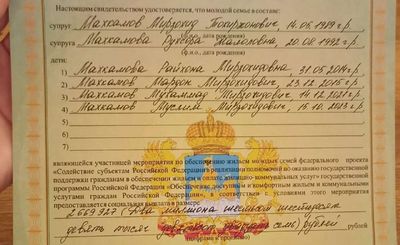 Настоящим свидетельством удостоверяется, что молодой семье в составе:
супруг Махкамов Мирзохид Тохиржонович 14.06.1989 г.р.
(ф.и.о., дата рождения)
супруга Махкамова Жалоловна, 20.08.1992 г.р.
(ф.и.о., дата рождения)
дети:
1) Махкамова Райхона Мирзохидовна, 31.05.2014 г.р.
2) Махкамов Мардон Мирзохидович, 23.12.2015 г.р.
3) Махкамов Мухаммад Мирзохидович, 14.12.2021 г.р.
4) Махкамов Муслим Мирзохидович, 15.10.2023 г.р.
5)
6)
7)
являющейся участницей мероприятия по обеспечению жильем молодых семей федерального проекта
«Содействие субъектам Российской Федерации в реализации полномочий по оказанию государственной
поддержки гражданам в обеспечении жильем и оплате жилищно-коммунальных услуг» государственной
программы Российской Федерации «Обеспечение доступным и комфортным жильем и коммунальными
услугами граждан Российской Федерации», в соответствии с условиями этого мероприятия
предоставляется социальная выплата в размере
2 669 927 (два миллиона шестьсот шестьдесят
девять тысяч девятьсот двадцать семь) рублей
рублей
(цифрами и прописью)